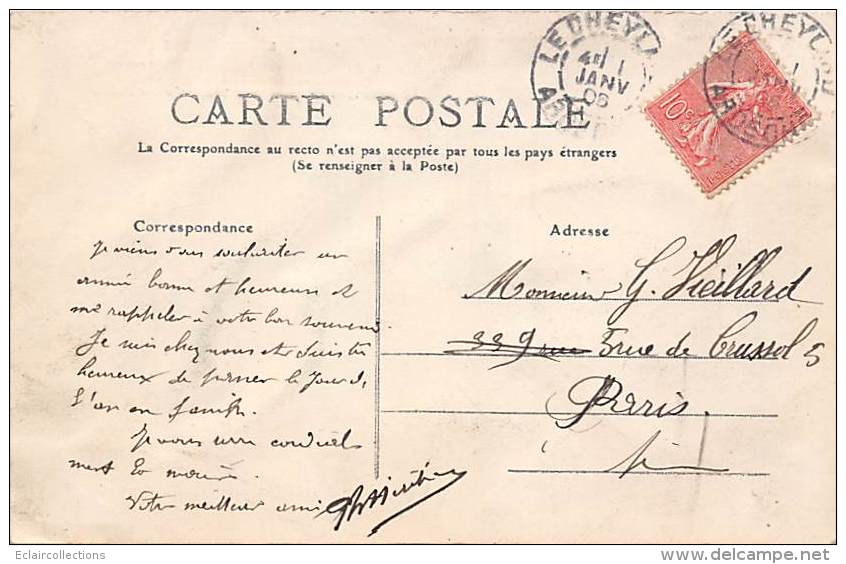 LE CHEYLARD
4E 1
JANV
06
ARDECHE
CHEYLARD
ARDECHE
10c
CARTE POSTALE
La Correspondance au recto n'est pas acceptée par tous les pays étrangers
(Se renseigner à la Poste)
Correspondance
Je viens vous souhaiter un
année bonne et heureuse et
me rappeler à votre bon souvenir
Je suis chez nous et suis très
heureux de passer le Jour d.
L'an en famille.
Je vous serre cordiale
ment la main
Votre meilleur ami
Adresse
Monsieur G. Vieillard
339 rue 5 rue de Crussol 5
Paris.
Eclaircollections
www.delcampe.net